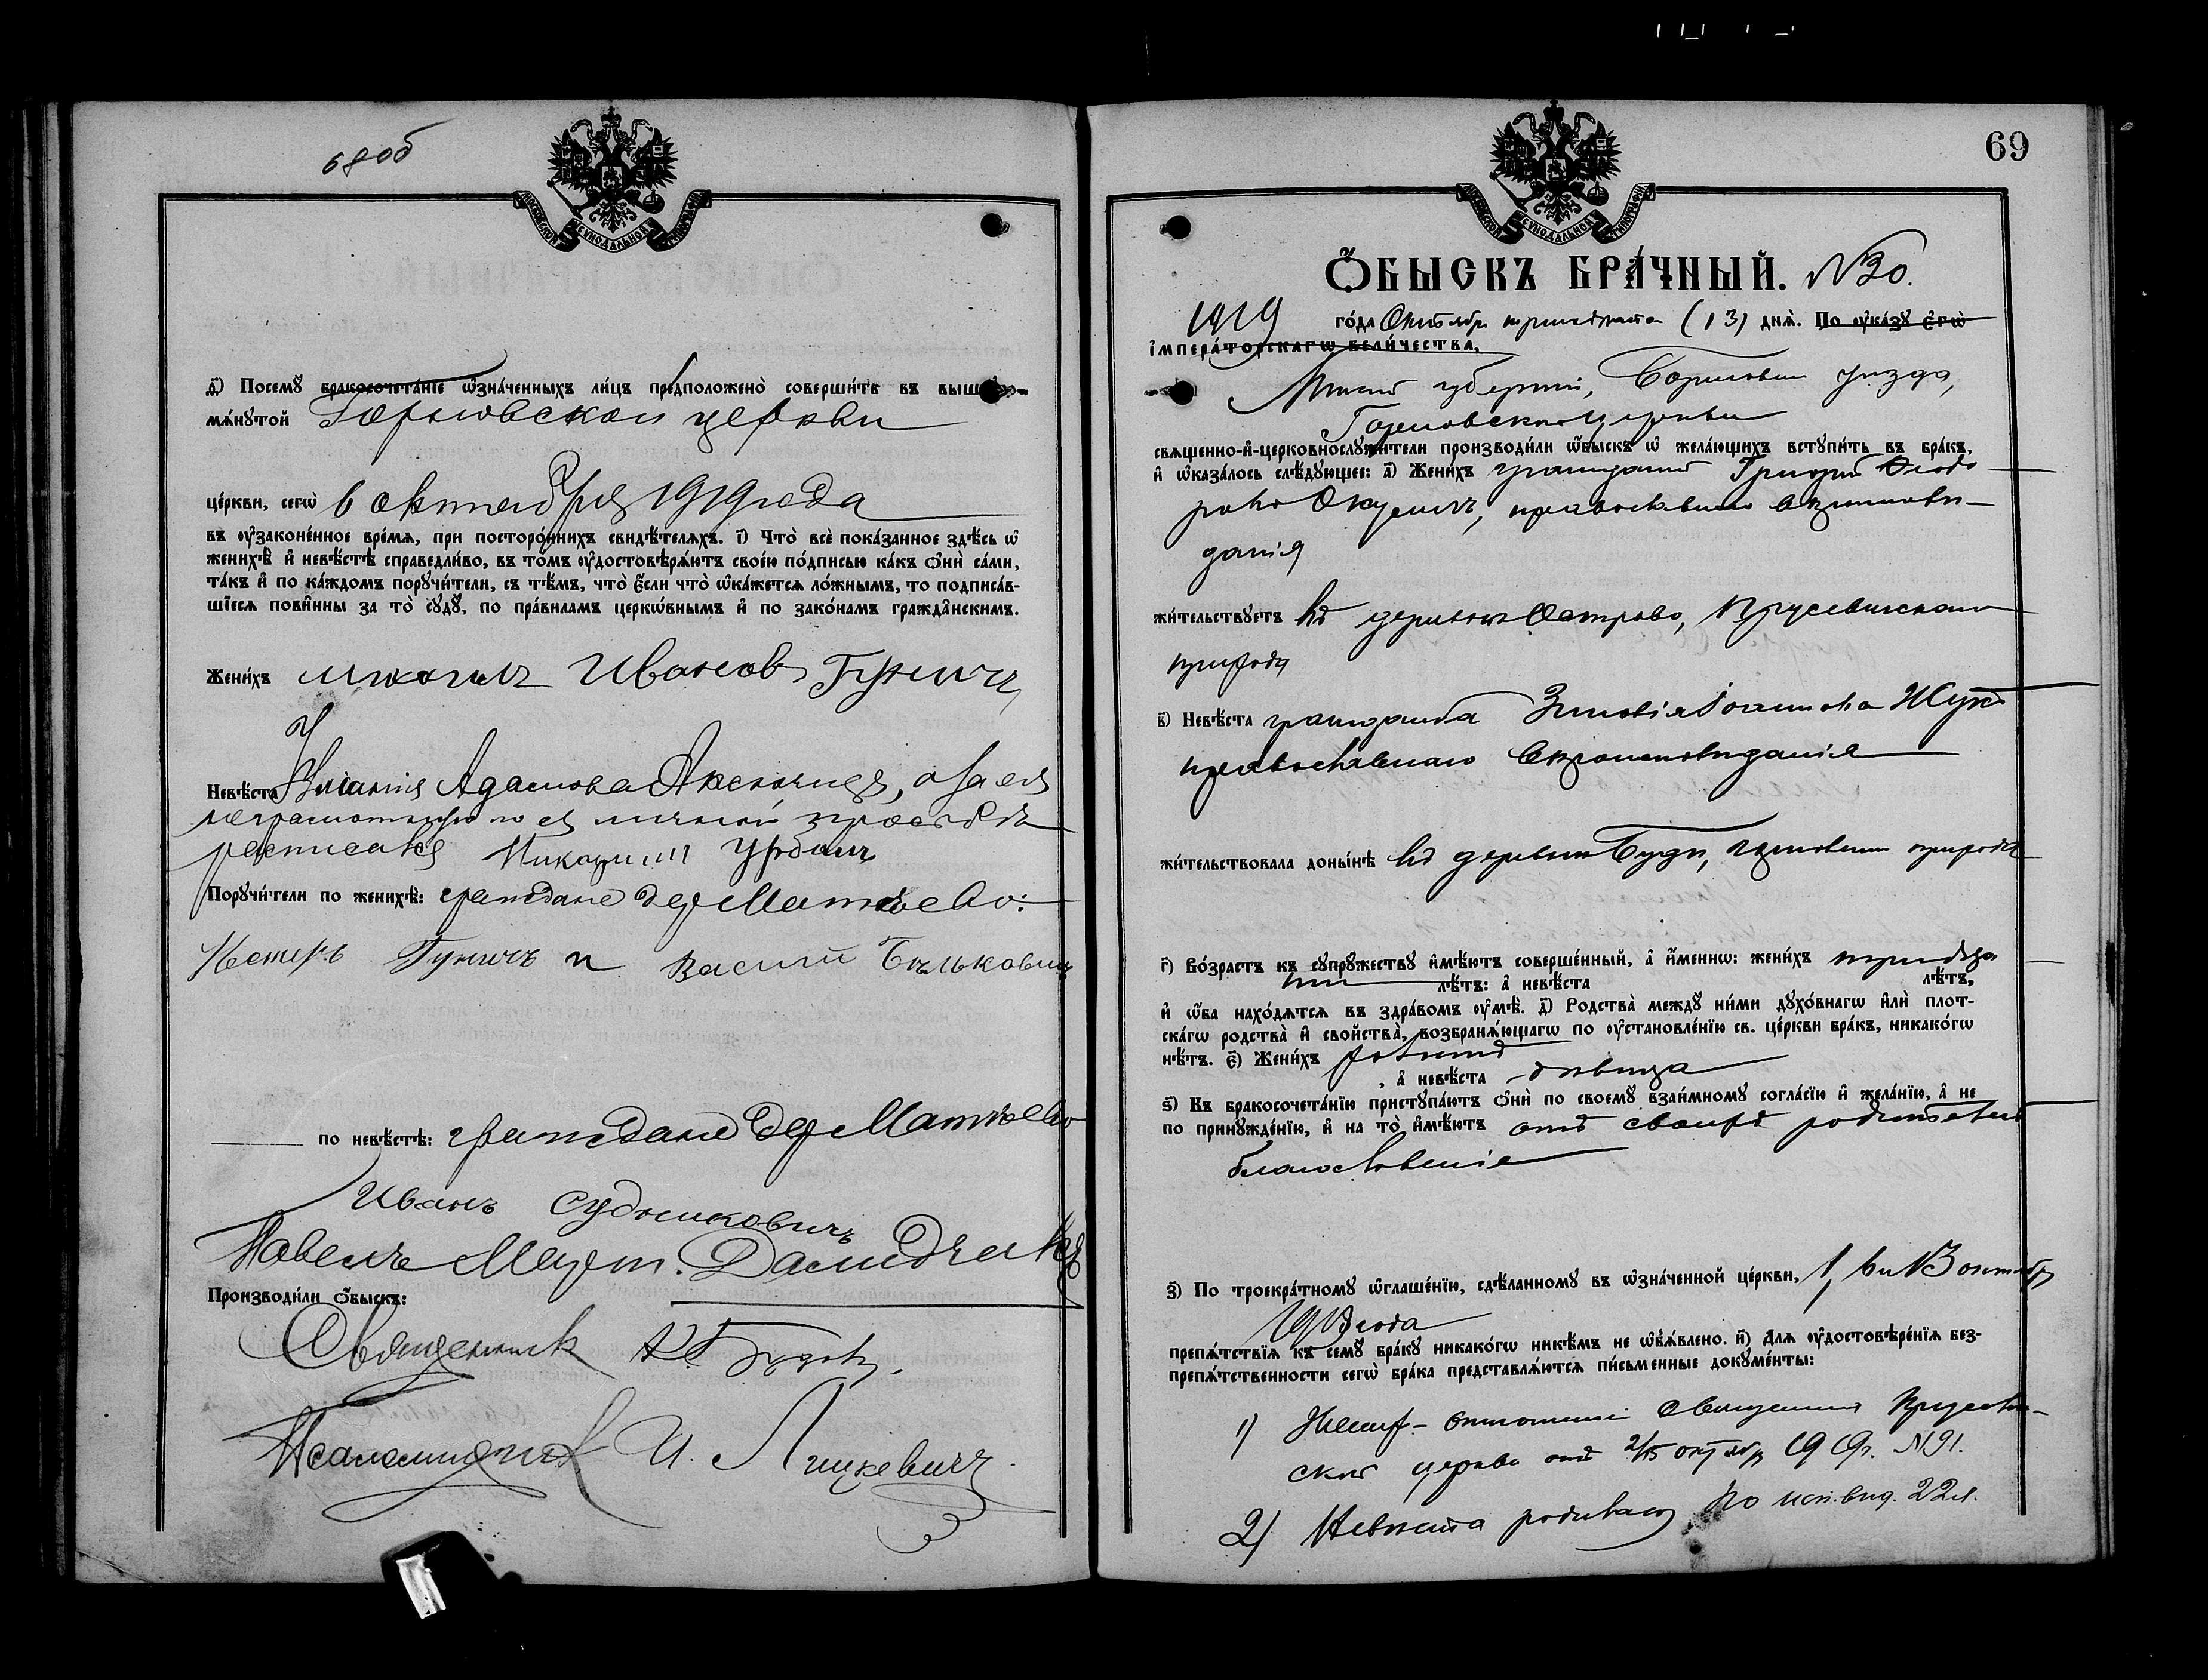 68об
МОСКОВСКОЙ СѴНОДАЛЬНОЙ ТИПОГРАФІИ
ѳ҃) Посемꙋ бракосочета́нїе ѡ҆зна́ченныхъ ли́цъ предположено̀ соверши́ть въ выш
мѧ́нꙋтой Горновской церкви
це́ркви, сегѡ̀ 6 октября 1919 года
въ ᲂу҆законе́нное вре́мѧ, при посторо́ннихъ свидѣ́телѧхъ. і҃) Что̀ всѐ пока́занное здѣ́сь ѡ҆
женихѣ̀ и҆ невѣ́стѣ справедли́во, въ то́мъ ᲂу҆достовѣрѧ́ютъ свое́ю по́дписью ка́къ ѻ҆нѝ са́ми,
та́къ и҆ по ка́ждомъ порꙋчи́тели, съ тѣ́мъ, что̀ є҆́сли что̀ ѡ҆ка́жетсѧ ло́жнымъ, то подписа́в-
шїесѧ пови́нны за то̀ сꙋдꙋ̀, по пра́виламъ церко́внымъ и҆ по зако́намъ гражда́нскимъ.
Жени́хъ Михаилъ Ивановъ Гуничъ
Невѣ́ста Адамова Аксючицъ, а за ея
неграмотную по ея личной просьбѣ
расписался Урбанъ
Порꙋчи́тели по женихѣ̀: граждане дер Матѣево:
Несторъ Гуничъ и Василій Бѣльковичъ
по невѣ́стѣ: граждане дер Матѣево
Иванъ Судниковичъ
Павелъ Март. Демидчикъ
Произвѡди́ли ѻ҆́быскъ:
Священникъ
Псаломщикъ И. Лицкевичъ.
69
МОСКОВСКОЙ СѴНОДАЛЬНОЙ ТИПОГРАФІИ
Ѻ҆́БЫСКЪ БРА́ЧНЫЙ. №30.
1919 го́да Октября тринадцата (13) днѧ̀. По ᲂу҆ка́зꙋ є҆гѡ̀
і҆мпера́торскагѡ вели́чества,
Минс губерніи, Борисовск уѣзда,
Горновской церкви
свѧще́нно-и҆-церковнослꙋжи́тели произвѡди́ли ѻ҆́быскъ ѡ҆ жела́ющихъ встꙋпи́ть въ бра́къ,
и҆ ѡ҆каза́лось слѣ́дꙋющее: а҃) Жени́хъ гражданин Григорій Ѳеодо
ровъ православнаго вѣроисповѣ-
данія
жи́тельствꙋетъ въ деревнѣ Острово, Прусевичскаго
прихода
в҃) Невѣ́ста гражданка Зиновія Іоаннова Жукъ
православнаго вѣроисповѣданія
жи́тельствовала доны́нѣ въ деревнѣ Буды, Горновск прихода
г҃) Во́зрастъ къ сꙋпрꙋ́жествꙋ и҆мѣ́ютъ соверше́нный, а҆ и҆́меннѡ: жени́хъ тридца
ти лѣ́тъ: а҆ невѣ́ста лѣ́тъ,
и҆ ѻ҆́ба нахо́дѧтсѧ въ здра́вомъ ᲂу҆мѣ̀. д҃) Родства̀ междꙋ ни́ми дꙋхо́внагѡ и҆лѝ плот-
ска́гѡ родства̀ и҆ сво́йства̀, возбранѧ́ющагѡ по ᲂу҆становле́нїю св. це́ркви бра́къ, никако́гѡ
нѣ́тъ. є҃) Жени́хъ , а҆ невѣ́ста дѣвица
ѕ҃) Къ бракосочета́нїю пристꙋпа́ютъ ѻ҆нѝ по своемꙋ̀ взаи́мномꙋ согла́сїю и҆ жела́нїю, а҆ не
по принꙋжде́нїю, и҆ на то̀ и҆мѣ́ютъ отъ своихъ родителей
благословеніе
з҃) По троекра́тномꙋ ѡ҆глаше́нїю, сдѣ́ланномꙋ въ ѡ҆зна́ченной це́ркви, 1, 6 и 13 октября
1919 года
препѧ́тствїѧ къ семꙋ̀ бра́кꙋ никако́гѡ никѣ́мъ не ѡ҆б̾ѧ́влено. и҃) Длѧ̀ ᲂу҆достовѣре́нїѧ без-
препѧ́тственности сегѡ̀ бра́ка представлѧ́ютсѧ пи́сьменные докꙋме́нты:
1) Жених – отношеніе священника Прусевич-
ской церкви отъ 2/15 октября 1919 г. №91.
2) Невѣста родилась По исп. вѣд. 22 л.